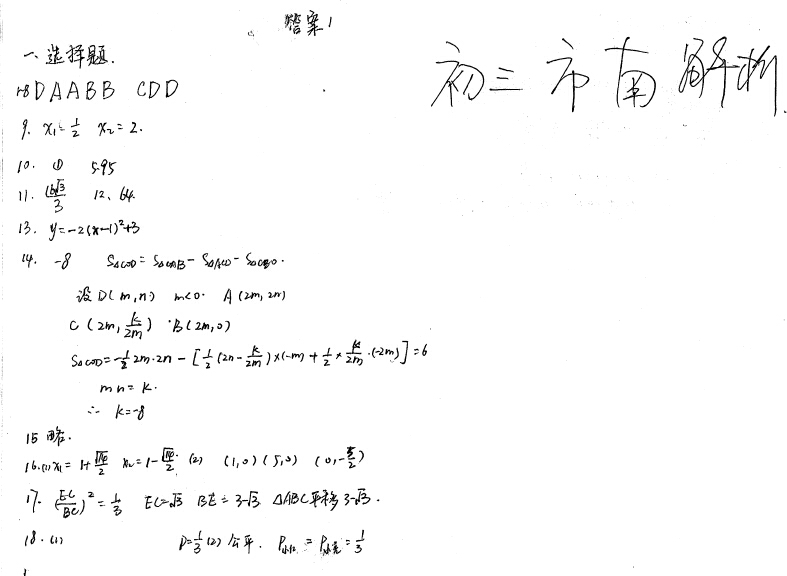 答案1
初三市南解析
一、选择题.
1-8 D A A B B C D D
9. x₁=1/2 x₂=2.
10. ① 5.95
11. 16√3/3 12、64.
13. y=-2(x-1)²+3
14. -8 S△COD=S△OAB-S△ACD-S△OBC.
设D(m,n) m<0. A(2m,2n)
C(2m, k/2m) B(2m,0)
S△COD=-1/2 2m·2n-[1/2(2n-k/2m)×(-m)+1/2×k/2m·(-2m)]=6
mn=k.
∴ k=-8
15 略.
16.(1) x₁=1+√10/2 x₂=1-√10/2. (2) (1,0) (5,0) (0,-5/2)
17. (EC/BC)²=1/3 EC=√3 BE=3-√3 △ABC平移3-√3.
18.(1) P=1/3 (2) 公平. = =1/3